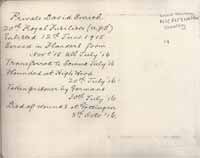 Private David Branch
20th Royal Fusiliers
Enlisted 15th June 1915
Served in Flanders from
Nov. 15 till July 16
Transferred to Somme July 16
Wounded at High Wood
20th July '16
Taken prisoner by Germans
20th July 16
Died of wounds at Göttingen
3rd Octr '16